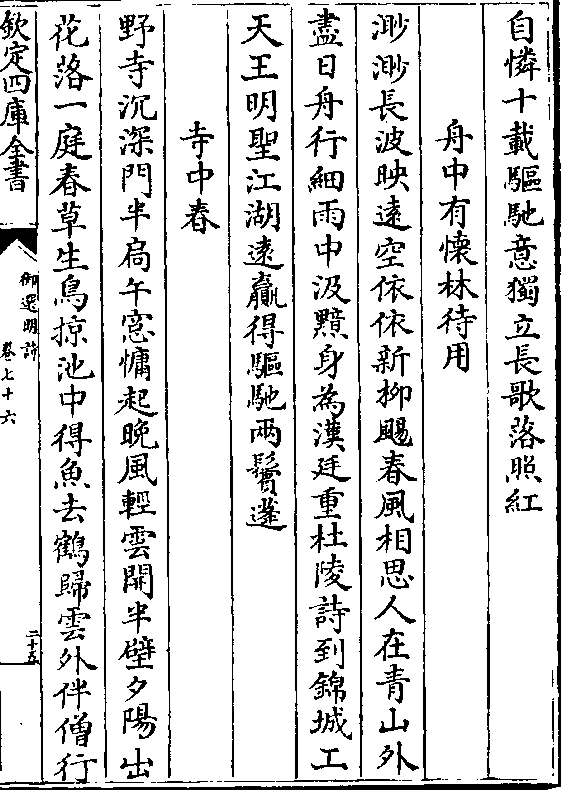 自憐十載驅馳意獨立長歌落照紅
舟中有懐林待用
渺渺長波映遠空依依新柳颺春風相思人在青山外
盡日舟行細雨中汲黯身為漢廷重杜陵詩到錦城工
天王明聖江湖遠贏得驅馳兩鬢蓬
寺中春
野寺沉深門半扃午窓慵起晚風輕雲開半壁夕陽出
花落一庭春草生鳥掠池中得魚去鶴歸雲外伴僧行
欽定四庫全書
御選明詩
卷七十六
二十五